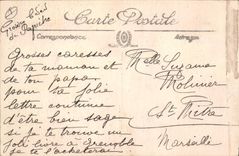 Carte Postale
Correspondance
Adresse
Grosses caresses
de ta maman et
de ton papa
pour ta jolie
lettre continue
d'être bien sage
si je te trouve un
joli livre à Grenoble
je te l'achèterai
Melle Suzanne
Molinier
St Mitre
Marseille